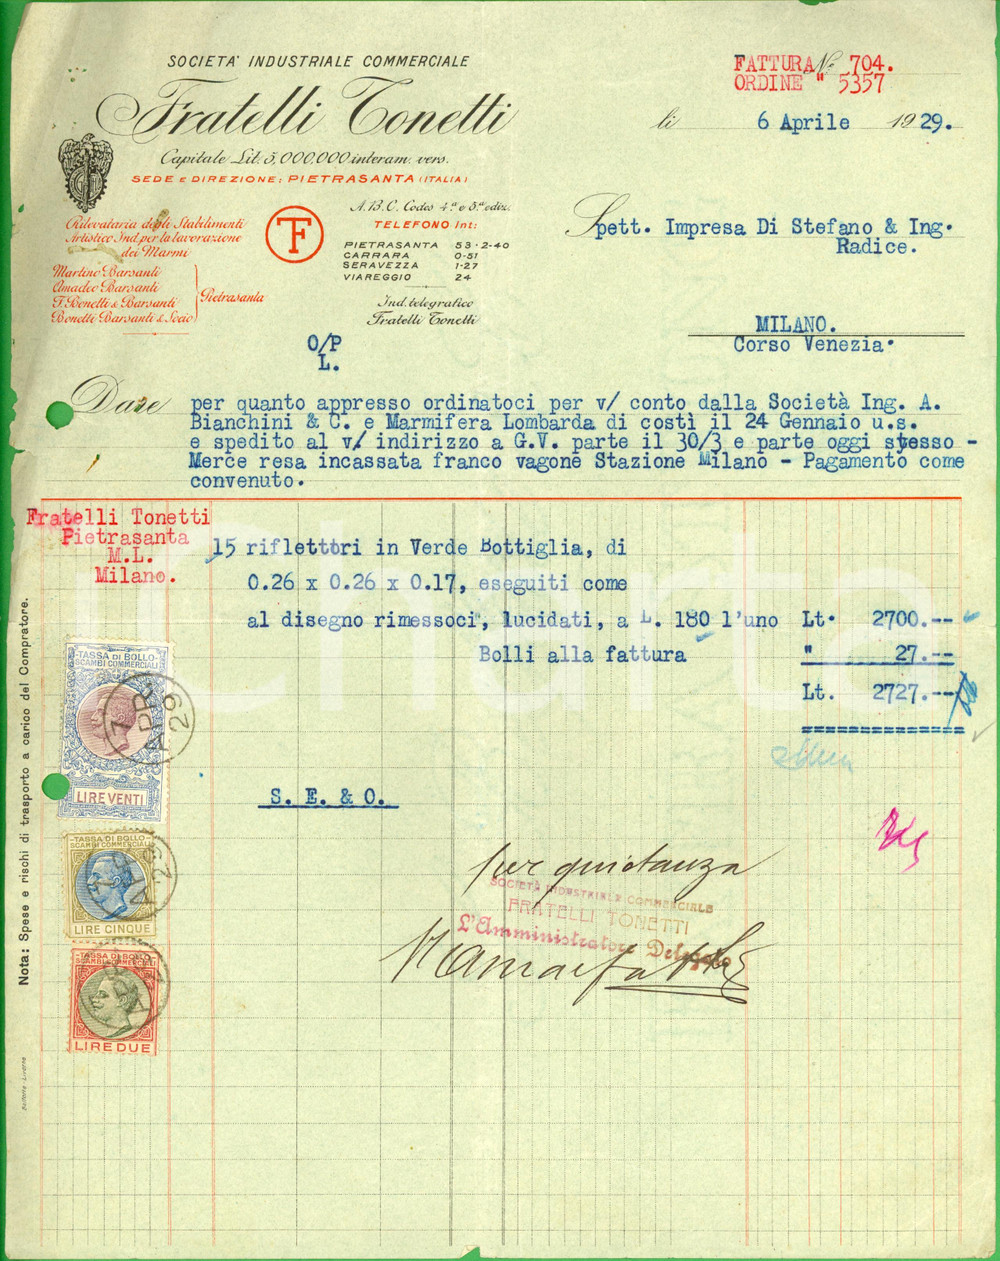 SOCIETA' INDUSTRIALE COMMERCIALE
Fratelli Tonetti
Capitale Lit. 5,000,000 interam. vers.
SEDE E DIREZIONE: PIETRASANTA (ITALIA)
FATTURA No 704.
ORDINE " 5357
li 6 Aprile 1929.
Rilevataria degli Stabilimenti
Artistico Ind. per la lavorazione
dei Marmi
Martino Barsanti
Amadeo Barsanti
F. Bonetti & Barsanti
Bonetti Barsanti & Socio
Pietrasanta
TF
A.B.C. Codes 4a e 5a ediz.
TELEFONO Int:
PIETRASANTA 53-2-40
CARRARA 0-51
SERAVEZZA 1-27
VIAREGGIO 24
Ind. telegrafico
Fratelli Tonetti
Spett. Impresa Di Stefano & Ing.
Radice.
MILANO.
Corso Venezia.
O/P
L.
Dare per quanto appresso ordinatoci per v/ conto dalla Società Ing. A.
Bianchini & C. e Marmifera Lombarda di costì il 24 Gennaio u.s.
e spedito al v/ indirizzo a G.V. parte il 30/3 e parte oggi stesso -
Merce resa incassata franco vagone Stazione Milano - Pagamento come
convenuto.
Fratelli Tonetti
Pietrasanta
M.L.
Milano.
15 riflettori in Verde Bottiglia, di
0.26 x 0.26 x 0.17, eseguiti come
al disegno rimessoci, lucidati, a L. 180 l'uno Lt. 2700.--
Bolli alla fattura " 27.--
Lt. 2727.--
S. E. & O.
TASSA DI BOLLO
SCAMBI COMMERCIALI
7 APR 29
LIRE VENTI
TASSA DI BOLLO
SCAMBI COMMERCIALI
LIRE CINQUE
TASSA DI BOLLO
SCAMBI COMMERCIALI
LIRE DUE
per quietanza
SOCIETÀ INDUSTRIALE COMMERCIALE
FRATELLI TONETTI
L'Amministratore Delegato
Nota: Spese e rischi di trasporto a carico del Compratore.